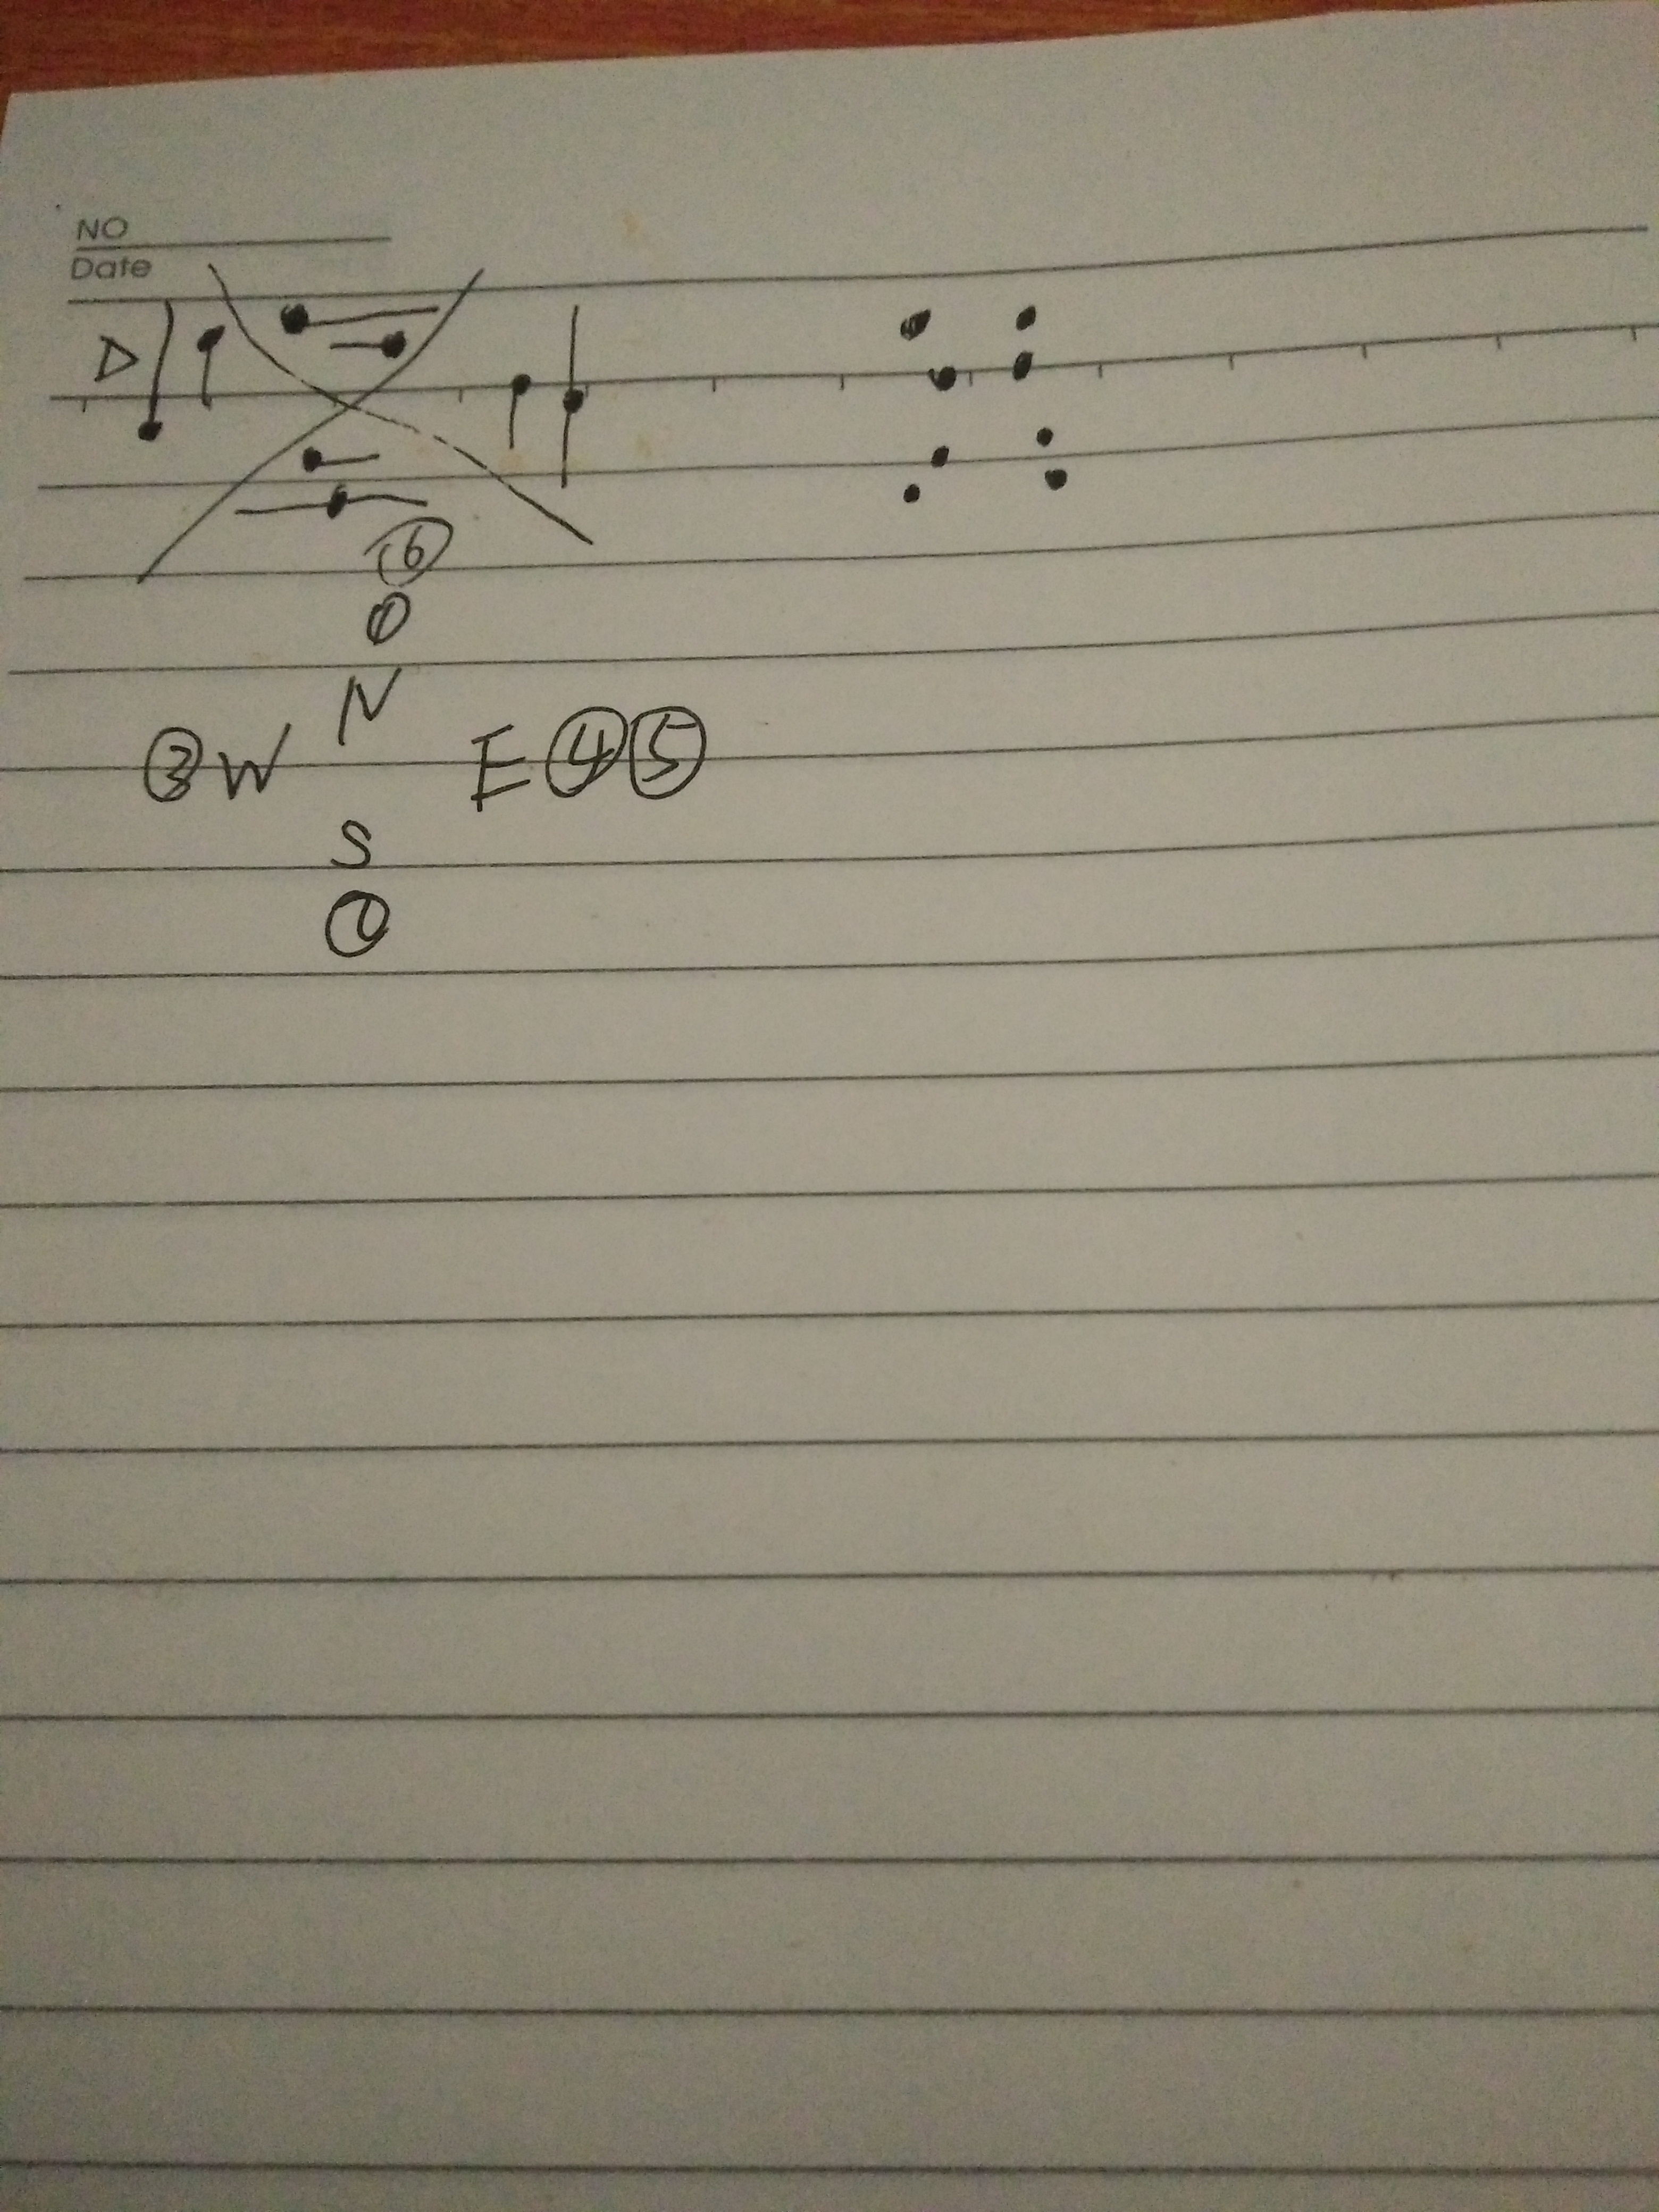 NO
Date
D
⑥
①
N
③ W E ④ ⑤
S